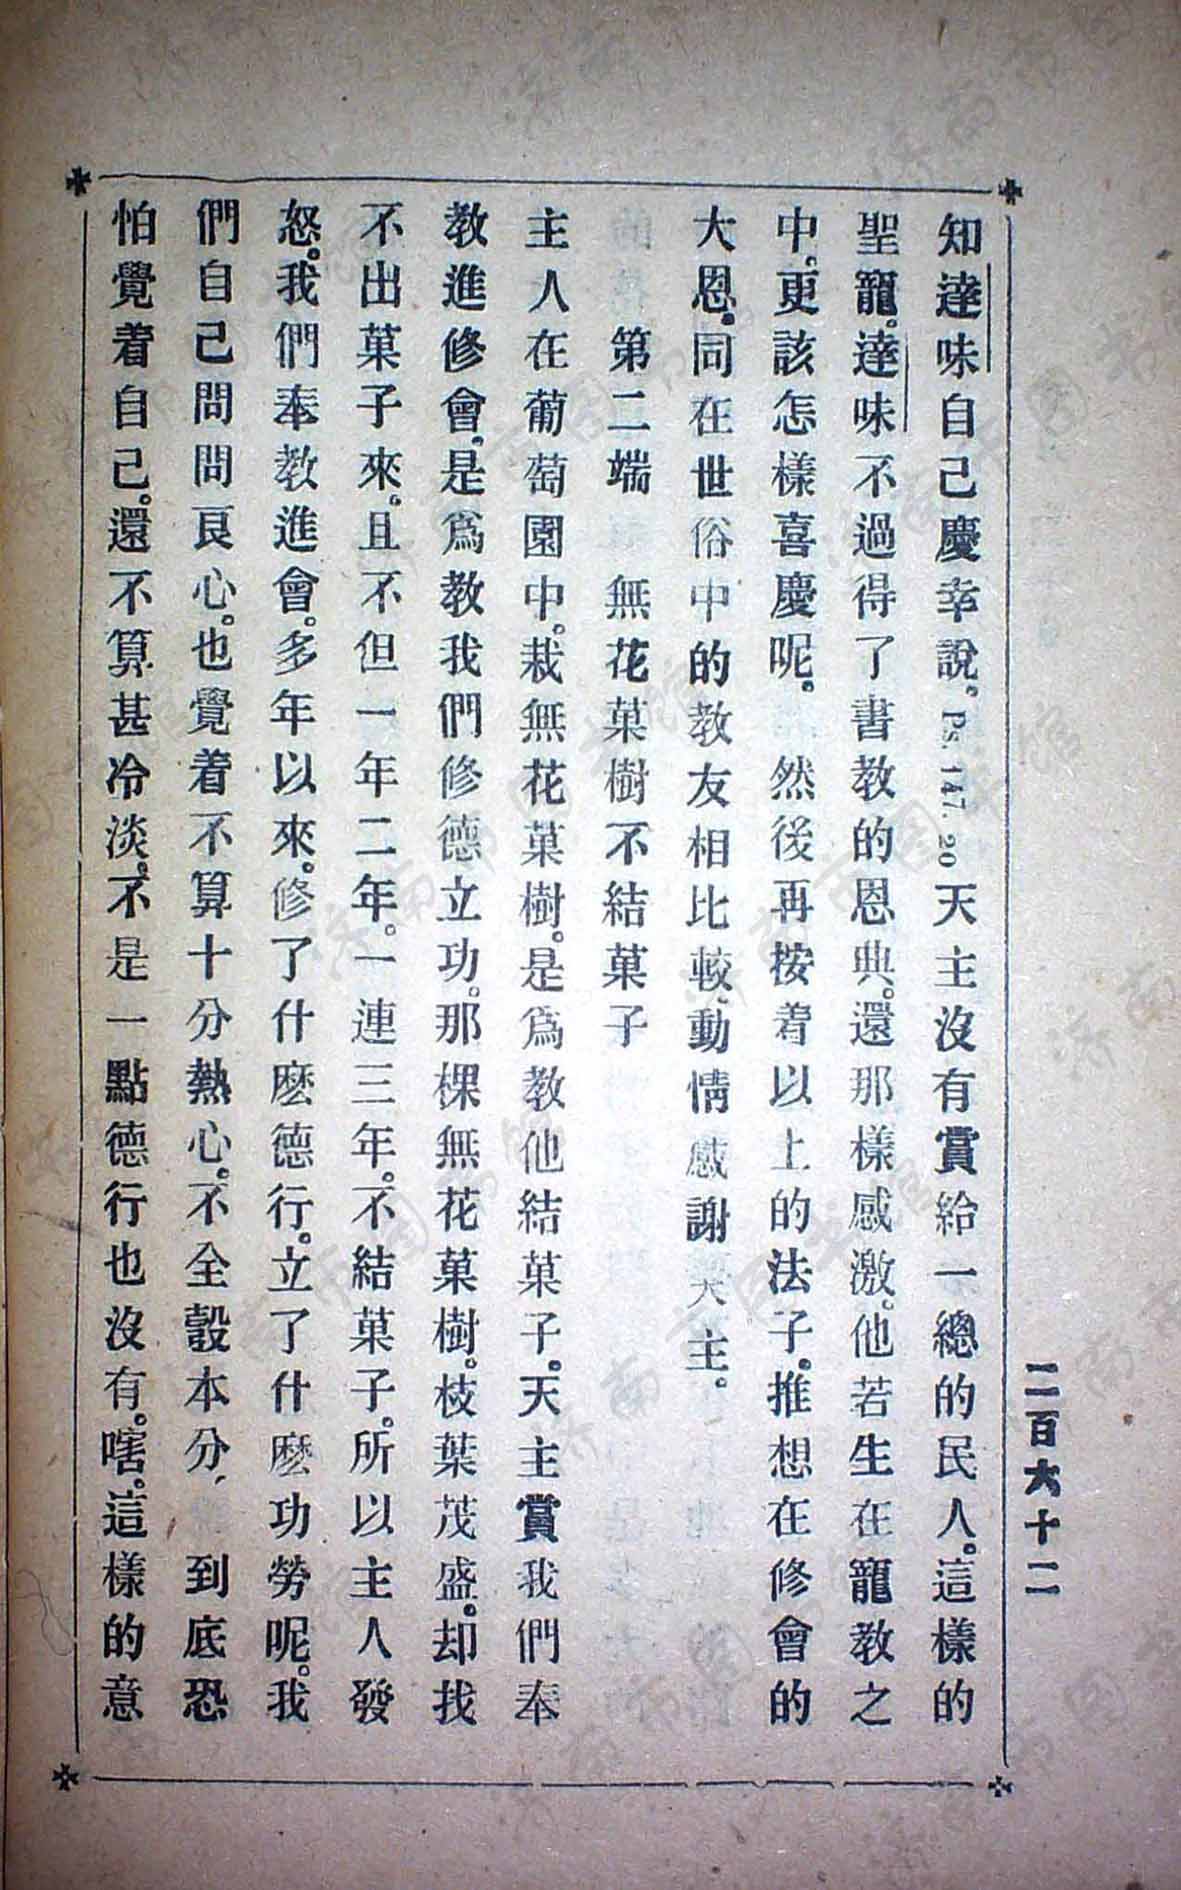 知達味自己慶幸說。Ps. 147. 20天主沒有賞給一總的民人。這樣的
聖寵。達味不過得了書教的恩典。還那樣感激。他若生在寵教之
中、更該怎樣喜慶呢。然後再按着以上的法子。推想在修會的
大恩。同在世俗中的教友相比較、動情感謝天主。
第二端 無花菓樹不結菓子
主人在葡萄園中。栽無花菓樹。是爲教他結菓子。天主賞我們奉
教進修會。是爲教我們修德立功。那棵無花菓樹。枝葉茂盛。却找
不出菓子來。且不但一年二年。一連三年。不結菓子。所以主人發
怒。我們奉教進會。多年以來。修了什麽德行。立了什麽功勞呢。我
們自己問問良心。也覺着不算十分熱心。不全彀本分、到底恐
怕覺着自己。還不算甚冷淡。不是一點德行也沒有。嗐。這樣的意
二百六十二
济南市图书馆